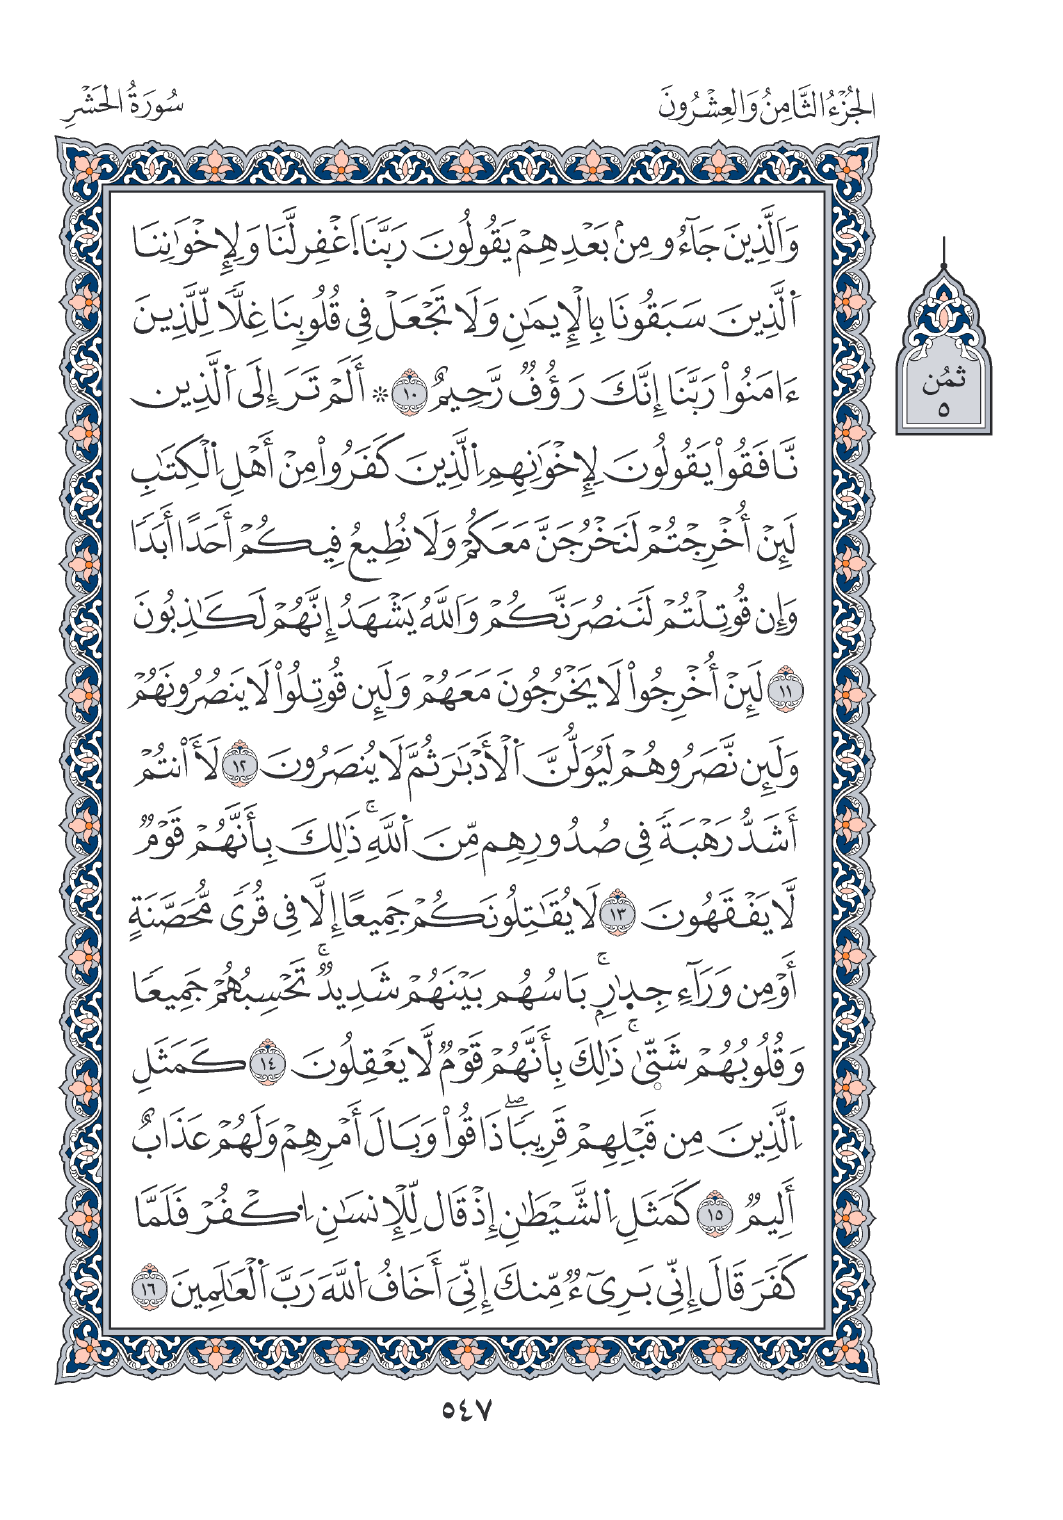 الجُزْءُ الثَّامِنُ وَالعِشْرُونَ
سُورَةُ الحَشْرِ
وَالَّذِينَ جَآءُو مِنۢ بَعْدِهِمْ يَقُولُونَ رَبَّنَا اَ۪غْفِرْ لَنَا وَلِإِخْوَٰنِنَا
اَ۬لَّذِينَ سَبَقُونَا بِالْإِيمَٰنِ وَلَا تَجْعَلْ فِى قُلُوبِنَا غِلًّا لِّلَّذِينَ
ءَامَنُواْ رَبَّنَا إِنَّكَ رَؤُفٌ رَّحِيمٌ ١٠ * أَلَمْ تَرَ إِلَى اَ۬لَّذِينَ
نَّافَقُواْ يَقُولُونَ لِإِخْوَٰنِهِمِ اِ۬لَّذِينَ كَفَرُواْ مِنْ أَهْلِ اِ۬لْكِتَٰبِ
لَئِنْ أُخْرِجْتُمْ لَنَخْرُجَنَّ مَعَكُمْ وَلَا نُطِيعُ فِيكُمْ أَحَدًا أَبَدًا
وَإِن قُوتِلْتُمْ لَنَنصُرَنَّكُمْ وَاللَّهُ يَشْهَدُ إِنَّهُمْ لَكَٰذِبُونَ
١١ لَئِنْ أُخْرِجُواْ لَا يَخْرُجُونَ مَعَهُمْ وَلَئِن قُوتِلُواْ لَا يَنصُرُونَهُمْ
وَلَئِن نَّصَرُوهُمْ لَيُوَلُّنَّ اَ۬لْأَدْبَٰرَ ثُمَّ لَا يُنصَرُونَ ١٢ لَأَنتُمْ
أَشَدُّ رَهْبَةً فِى صُدُورِهِم مِّنَ اَ۬للَّهِۚ ذَٰلِكَ بِأَنَّهُمْ قَوْمٌ
لَّا يَفْقَهُونَ ١٣ لَا يُقَٰتِلُونَكُمْ جَمِيعًا إِلَّا فِى قُرًى مُّحَصَّنَةٍ
أَوْ مِن وَرَآءِ جِدَٰرٍۚ بَاسُهُم بَيْنَهُمْ شَدِيدٌۚ تَحْسِبُهُمْ جَمِيعًا
وَقُلُوبُهُمْ شَتَّىٰۚ ذَٰلِكَ بِأَنَّهُمْ قَوْمٌ لَّا يَعْقِلُونَ ١٤ كَمَثَلِ
اِ۬لَّذِينَ مِن قَبْلِهِمْ قَرِيبًاۖ ذَاقُواْ وَبَالَ أَمْرِهِمْ وَلَهُمْ عَذَابٌ
أَلِيمٌ ١٥ كَمَثَلِ اِ۬لشَّيْطَٰنِ إِذْ قَال لِّلْإِنسَٰنِ اِ۟كْفُرْ فَلَمَّا
كَفَرَ قَالَ إِنِّى بَرِىٓءٌ مِّنكَ إِنِّىَ أَخَافُ اُ۬للَّهَ رَبَّ اَ۬لْعَٰلَمِينَ ١٦
ثمُن
٥
٥٤٧